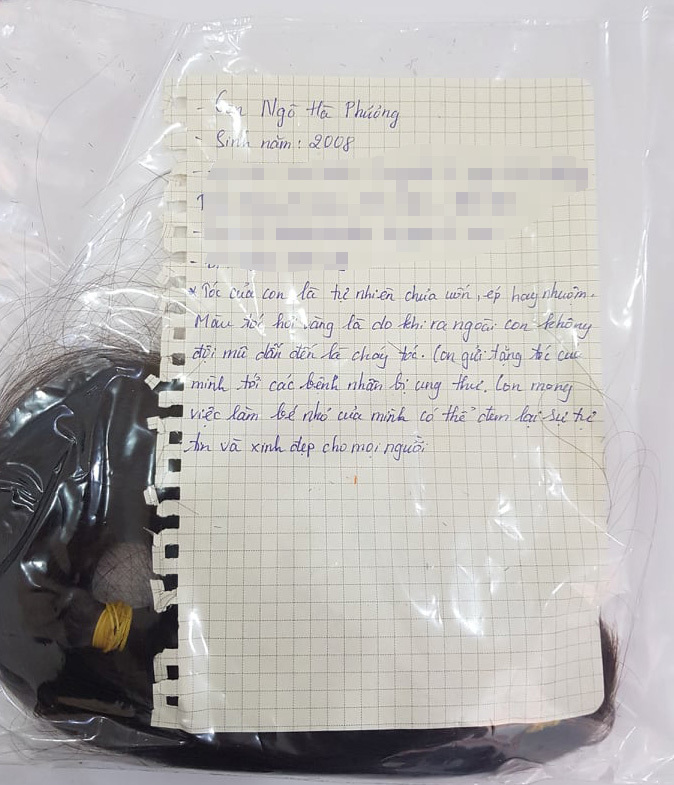 - Con Ngô Hà Phương
- Sinh năm: 2008
* Tóc của con là tự nhiên chưa uốn, ép hay nhuộm.
Màu tóc hơi vàng là do khi ra ngoài con không
đội mũ dẫn đến là cháy tóc. Con gửi tặng tóc của
mình tới các bệnh nhân bị ung thư. Con mong
việc làm bé nhỏ của mình có thể đem lại sự tự
tin và xinh đẹp cho mọi người